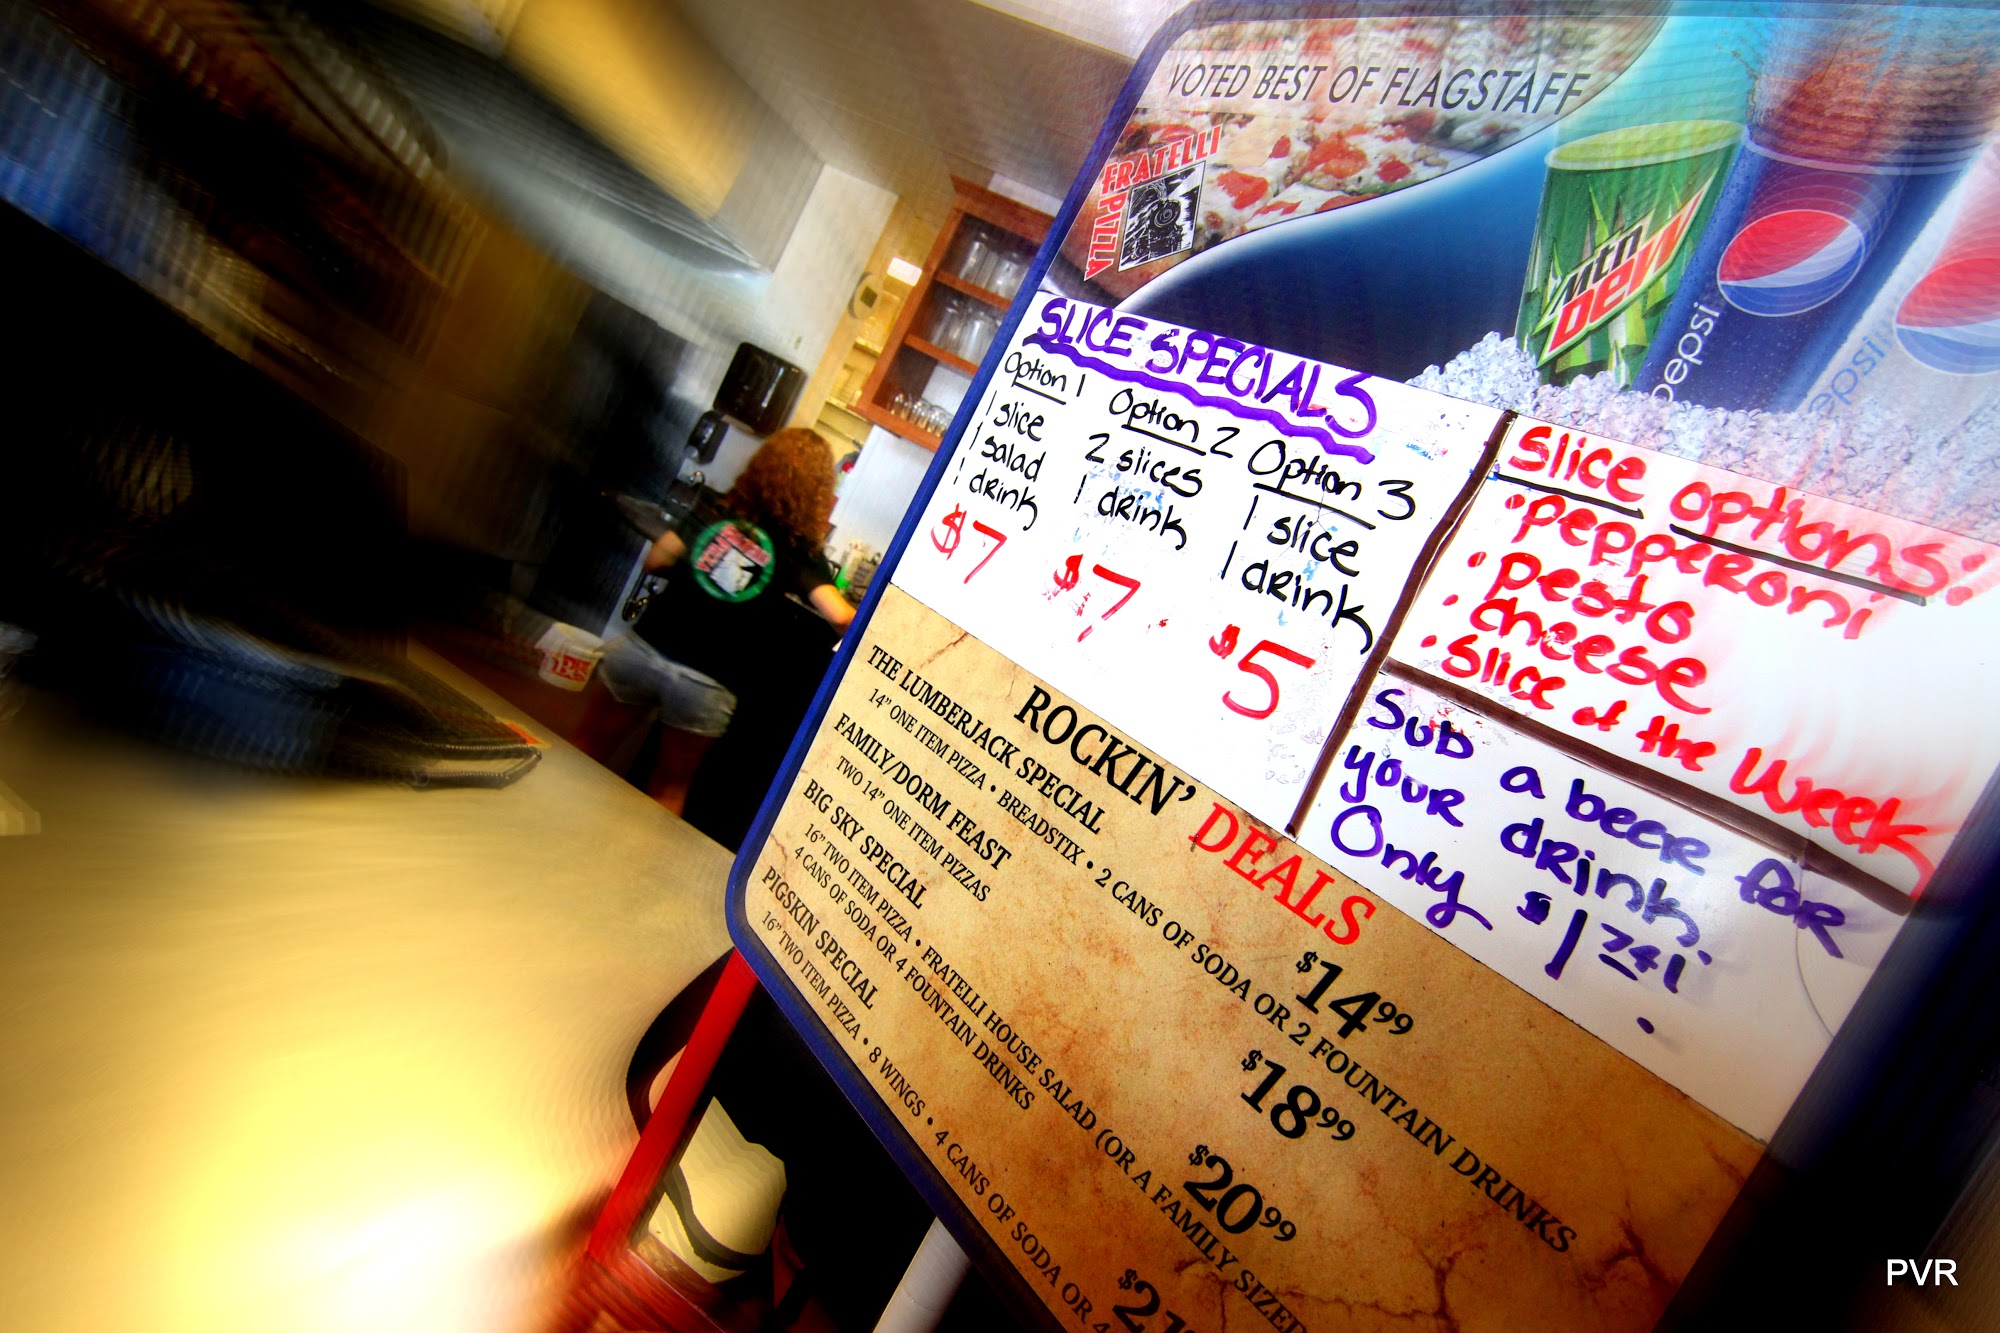 VOTED BEST OF FLAGSTAFF
FRATELLI
PIZZA
mtn
DEW
pepsi
pepsi
SLICE SPECIALS
Option 1
1 slice
1 salad
1 drink
$7
Option 2
2 slices
1 drink
$7
Option 3
1 slice
1 drink
$5
Slice options:
• pepperoni
• pesto
• cheese
• Slice of the Week
Sub a beer for
your drink
Only $1
ROCKIN' DEALS
THE LUMBERJACK SPECIAL $14.99
14" ONE ITEM PIZZA • BREADSTIX • 2 CANS OF SODA OR 2 FOUNTAIN DRINKS
FAMILY/DORM FEAST $18.99
TWO 14" ONE ITEM PIZZAS
BIG SKY SPECIAL $20.99
16" TWO ITEM PIZZA • FRATELLI HOUSE SALAD (OR A FAMILY SIZED
4 CANS OF SODA OR 4 FOUNTAIN DRINKS
PIGSKIN SPECIAL
16" TWO ITEM PIZZA • 8 WINGS • 4 CANS OF SODA OR 4
PVR